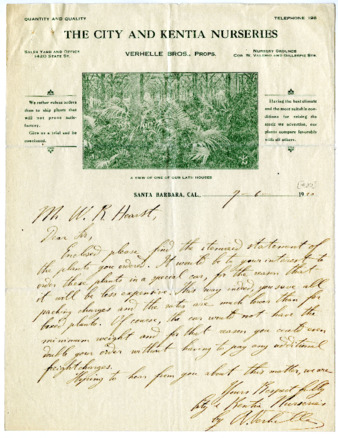 QUANTITY AND QUALITY
TELEPHONE
THE CITY AND KENTIA NURSERIES
VERHELLE BROS., PROPS.
SALES YARD AND OFFICE
1420 STATE ST.
NURSERY GROUNDS
COR. N. VALERIO AND GILLESPIE STS.
We rather refuse orders
than to ship plants that
will not prove satis-
factory.
Give us a trial and be
convinced.
Having the best climate
and the most suitable con-
ditions for raising the
stock we advertise, our
plants compare favorable
with all others.
A VIEW OF ONE OF OUR LATH HOUSES
SANTA BARBARA, CAL. 9-6 19
Mr. W. R. Hearst,
Dear Sir,
Enclosed please find the itemized statement of
the plants you ordered. It would be to your interest to
order these plants in a special car, for the reason that
it will be less expensive. This way indeed you save all
packing charges and the rates are much lower than for
boxed plants. Of course, the car would not have the
minimum weight and for that reason you could even
double your order without having to pay any additional
freight charges.
Hoping to hear from you about this matter, we are
Yours Respectfully
City & Kentia Nurseries
by Verhelle